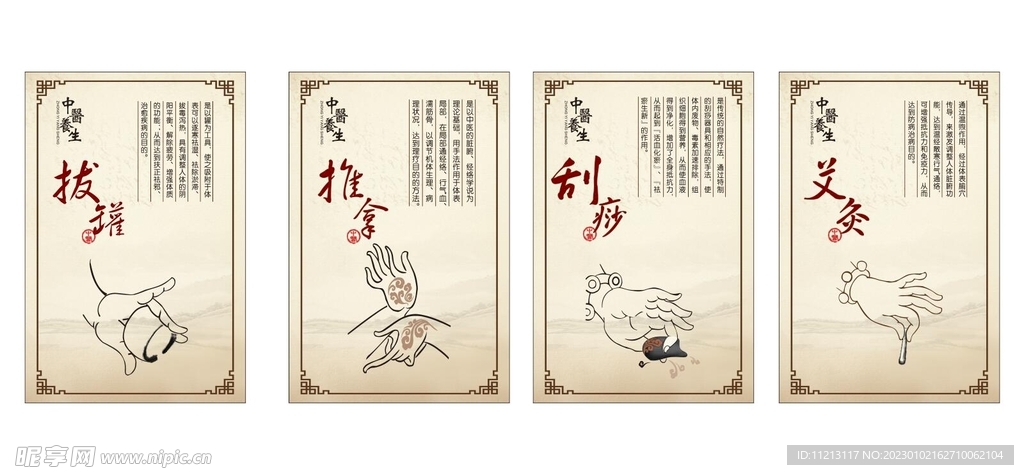 中醫養生
拔罐
是以罐为工具，使之吸附于体
表可以逐寒祛湿、祛除淤滞、
拔毒泻热，具有调整人体的阴
阳平衡、解除疲劳、增强体质
的功能；从而达到扶正祛邪、
治愈疾病的目的。
中醫養生
推拿
是以中医的脏腑、经络学说为
理论基础，用手法作用于体表
局部，在局部通经络、行气血、
濡筋骨，以调节机体生理、病
理状况，达到理疗目的的方法。
中醫養生
刮痧
是传统的自然疗法，通过特制
的刮痧器具和相应的手法，使
体内废物、毒素加速排除，组
织细胞得到营养，从而使血液
得到净化，增加了全身抵抗力
从而起到「活血化瘀」、「祛
瘀生新」的作用。
中醫養生
艾灸
通过温煦作用，经过体表腧穴
传导，来激发调整人体脏腑功
能，达到温经散寒行气通络，
可增强抵抗力和免疫力，从而
达到防病治病目的。
昵享网 www.nipic.cn
ID:11213117 NO:20230102162710062104